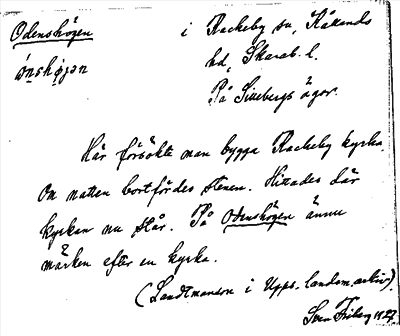 Odenshögen
i Rackeby sn, Kållands
hd, Skarab. l.
ónshö̀jan
På Sillebergs ägor.
Här försökte man bygga Rackeby kyrka.
Om natten bortfördes stenen. Hittades där
kyrkan nu står. På Odenshögen ännu
märken efter en kyrka.
(Landtmannen i Upps. landsm. arkiv).
Sven Friberg 1927.